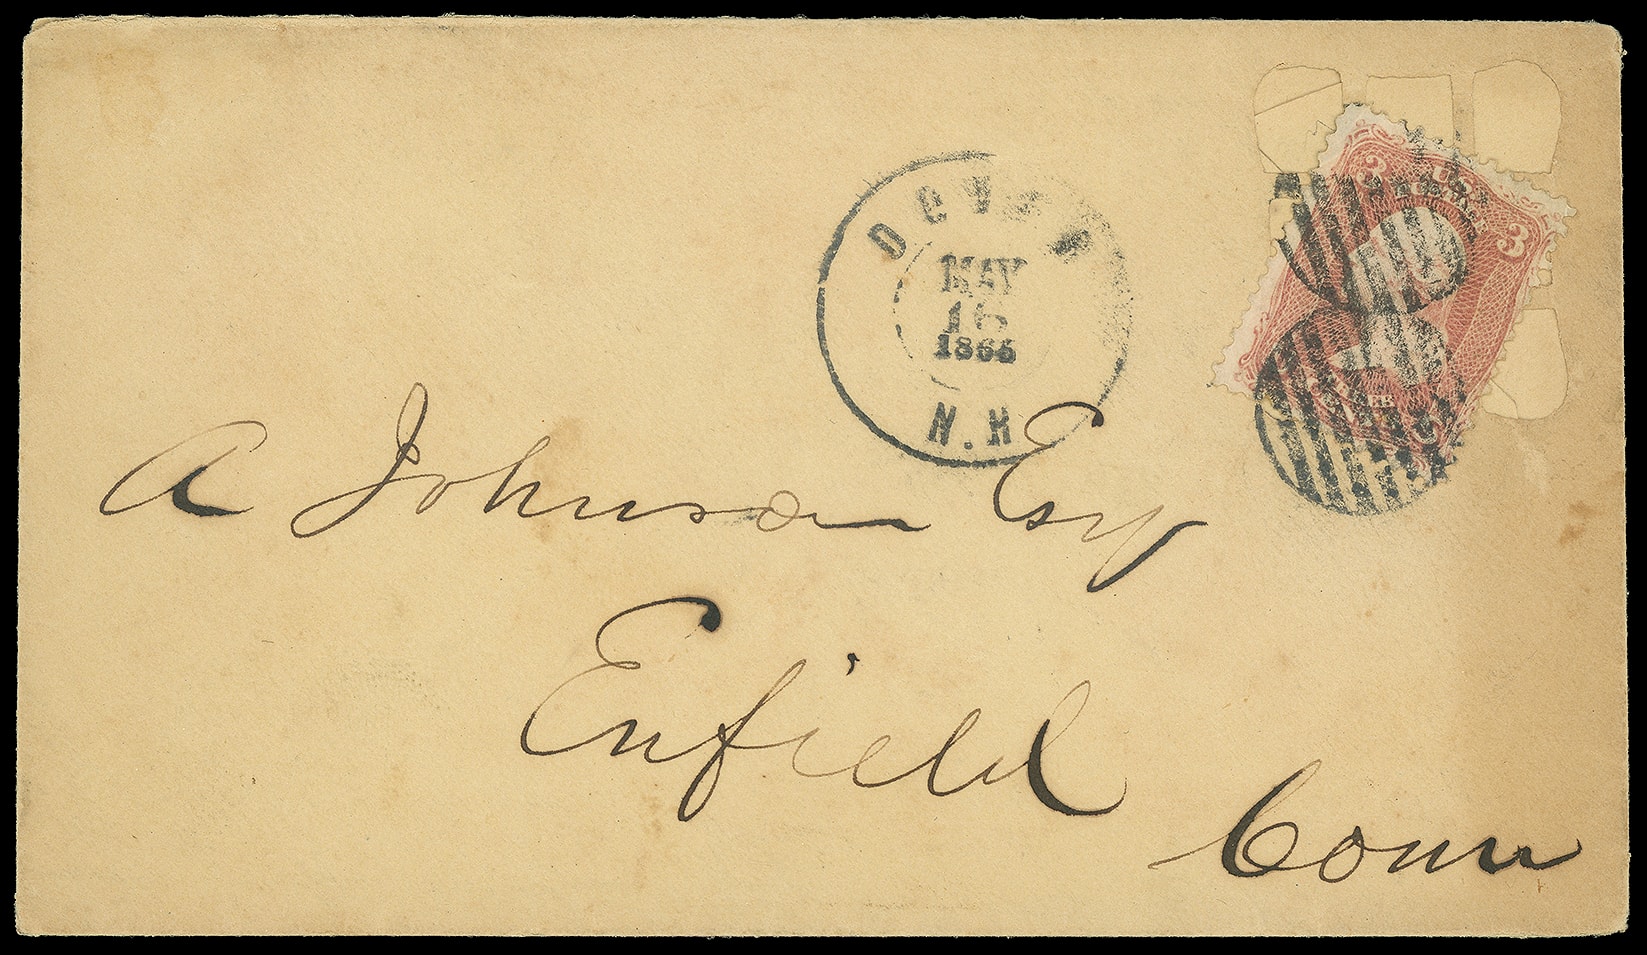 Dover
MAY
16
1866
N.H.
3 U.S. POSTAGE 3
A Johnson Esq
Enfield
Conn